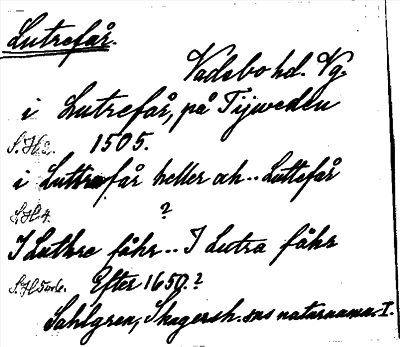 Lutrefår.
Vadsbo hd. Vg.
i Lutrefår, på Tijweden
S.H.2. 1505.
i Luttrafår heller ah.. Luttefår
S.H.4. ?
I Luthre fåhr.. I Lutra fåhr
Efter 1650.?
Sahlgren, Skagersh. sns naturnamn. I.